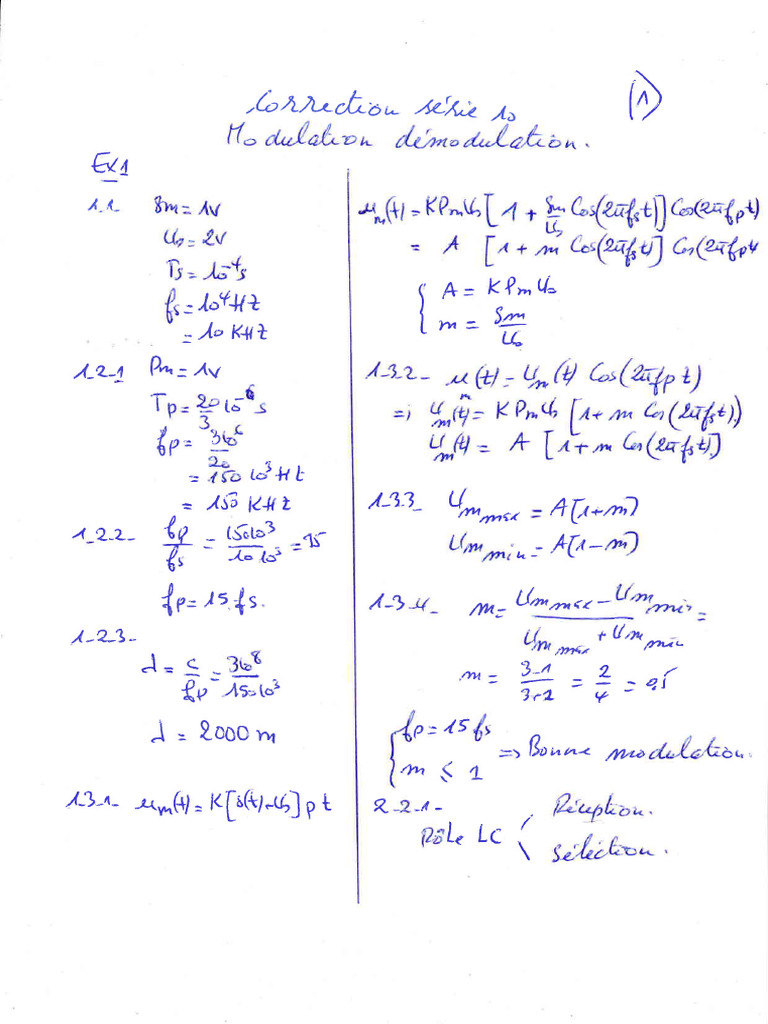 Correction série 10
(1)
Modulation démodulation.
Ex1
1.1 Sm = 1v
U₀ = 2v
Ts = 10⁻⁴s
fs = 10⁴ HZ
= 10 KHZ
1-2-1 Pm = 1v
Tp = 20 10⁻⁶/3 s
fp = 3 10⁶/20
= 150 10³ Ht
= 150 KHZ
1-2-2- fp/fs = 150 10³/10 10³ = 15
fp = 15.fs.
1-2-3-
λ = c/fp = 3 10⁸/150 10³
λ = 2000 m
1-3-1- um(t) = K[s(t)+U₀] p t
um(t) = K Pm U₀ [1 + Sm/U₀ Cos(2πfst)] Cos(2πfpt)
= A [1 + m Cos(2πfst)] Cos(2πfpt
{ A = K Pm U₀
m = Sm/U₀
1-3-2- um(t) = Um(t) Cos(2πfpt)
=> Um(t) = K Pm U₀ [1 + m Cos(2πfst)]
Um(t) = A [1 + m Cos(2πfst)]
1-3-3- Um max = A(1+m)
Um min = A(1-m)
1-3-4- m = Um max - Um min / Um max + Um min =
m = 3-1/3+2 = 2/4 = 0,5
{ fp = 15 fs
m ≤ 1
=> Bonne modulation.
2-2-1-
Rôle LC
Réception.
sélection.